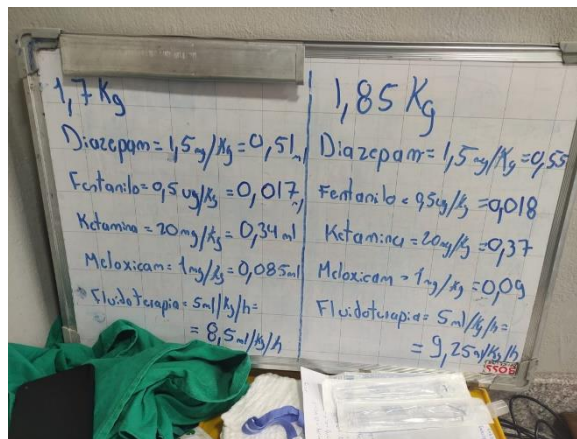 1,7 Kg
Diazepam = 1,5 mg/Kg = 0,51 ml
Fentanilo = 0,5 ug/Kg = 0,017 ml
Ketamina = 20 mg/Kg = 0,34 ml
Meloxicam = 1 mg/Kg = 0,085 ml
Fluidoterapia = 5 ml/Kg/h =
= 8,5 ml/Kg/h
1,85 Kg
Diazepam = 1,5 mg/Kg = 0,55
Fentanilo = 0,5 ug/Kg = 0,018
Ketamina = 20 mg/Kg = 0,37
Meloxicam = 1 mg/Kg = 0,09
Fluidoterapia = 5 ml/Kg/h =
= 9,25 ml/Kg/h